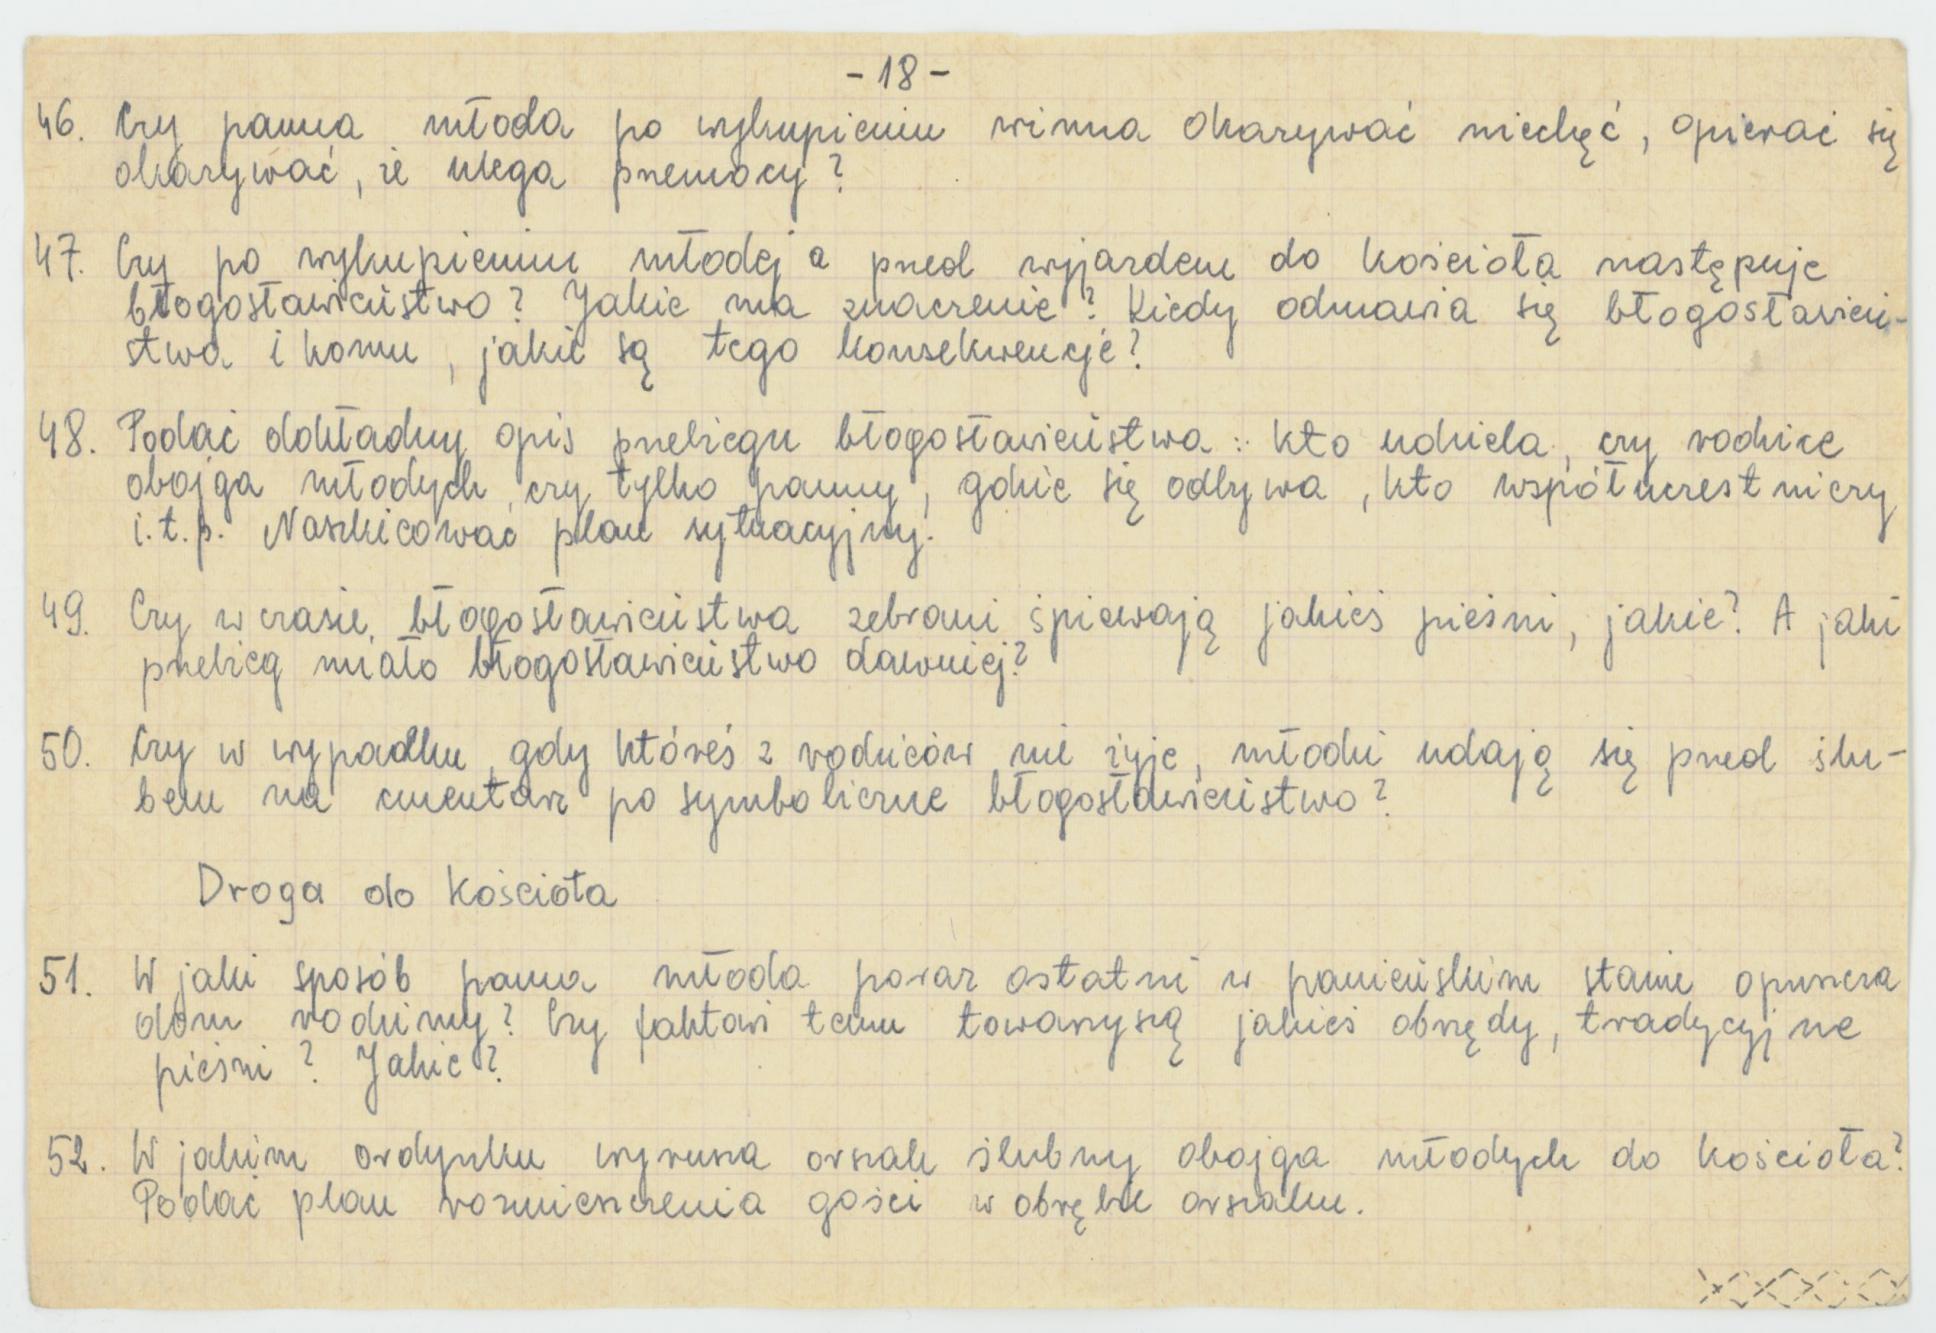 -18-
46. Czy panna młoda po wykupieniu winna okazywać niechęć, opierać się
okazywać, że ulega przemocy?
47. Czy po wykupieniu młodej a przed wyjazdem do kościoła następuje
błogosławieństwo? Jakie ma znaczenie? Kiedy odmawia się błogosławień-
stwa i komu, jakie są tego konsekwencje?
48. Podać dokładny opis przebiegu błogosławieństwa: kto udziela, czy rodzice
obojga młodych, czy tylko panny, gdzie się odbywa, kto współuczestniczy
i.t.p. Naszkicować plan sytuacyjny.
49. Czy w czasie błogosławieństwa zebrani śpiewają jakieś pieśni, jakie? A jaki
przebieg miało błogosławieństwo dawniej?
50. Czy w wypadku gdy któreś z rodziców nie żyje, młodzi udają się przed ślu-
bem na cmentarz po symboliczne błogosławieństwo?
Droga do kościoła
51. W jaki sposób panna młoda poraz ostatni w panieńskim stanie opuszcza
dom rodzinny? Czy faktowi temu towarzyszą jakieś obrzędy, tradycyjne
pieśni? Jakie?
52. W jakim ordynku wyrusza orszak ślubny obojga młodych do kościoła?
Podać plan rozmieszczenia gości w obrębie orszaku.